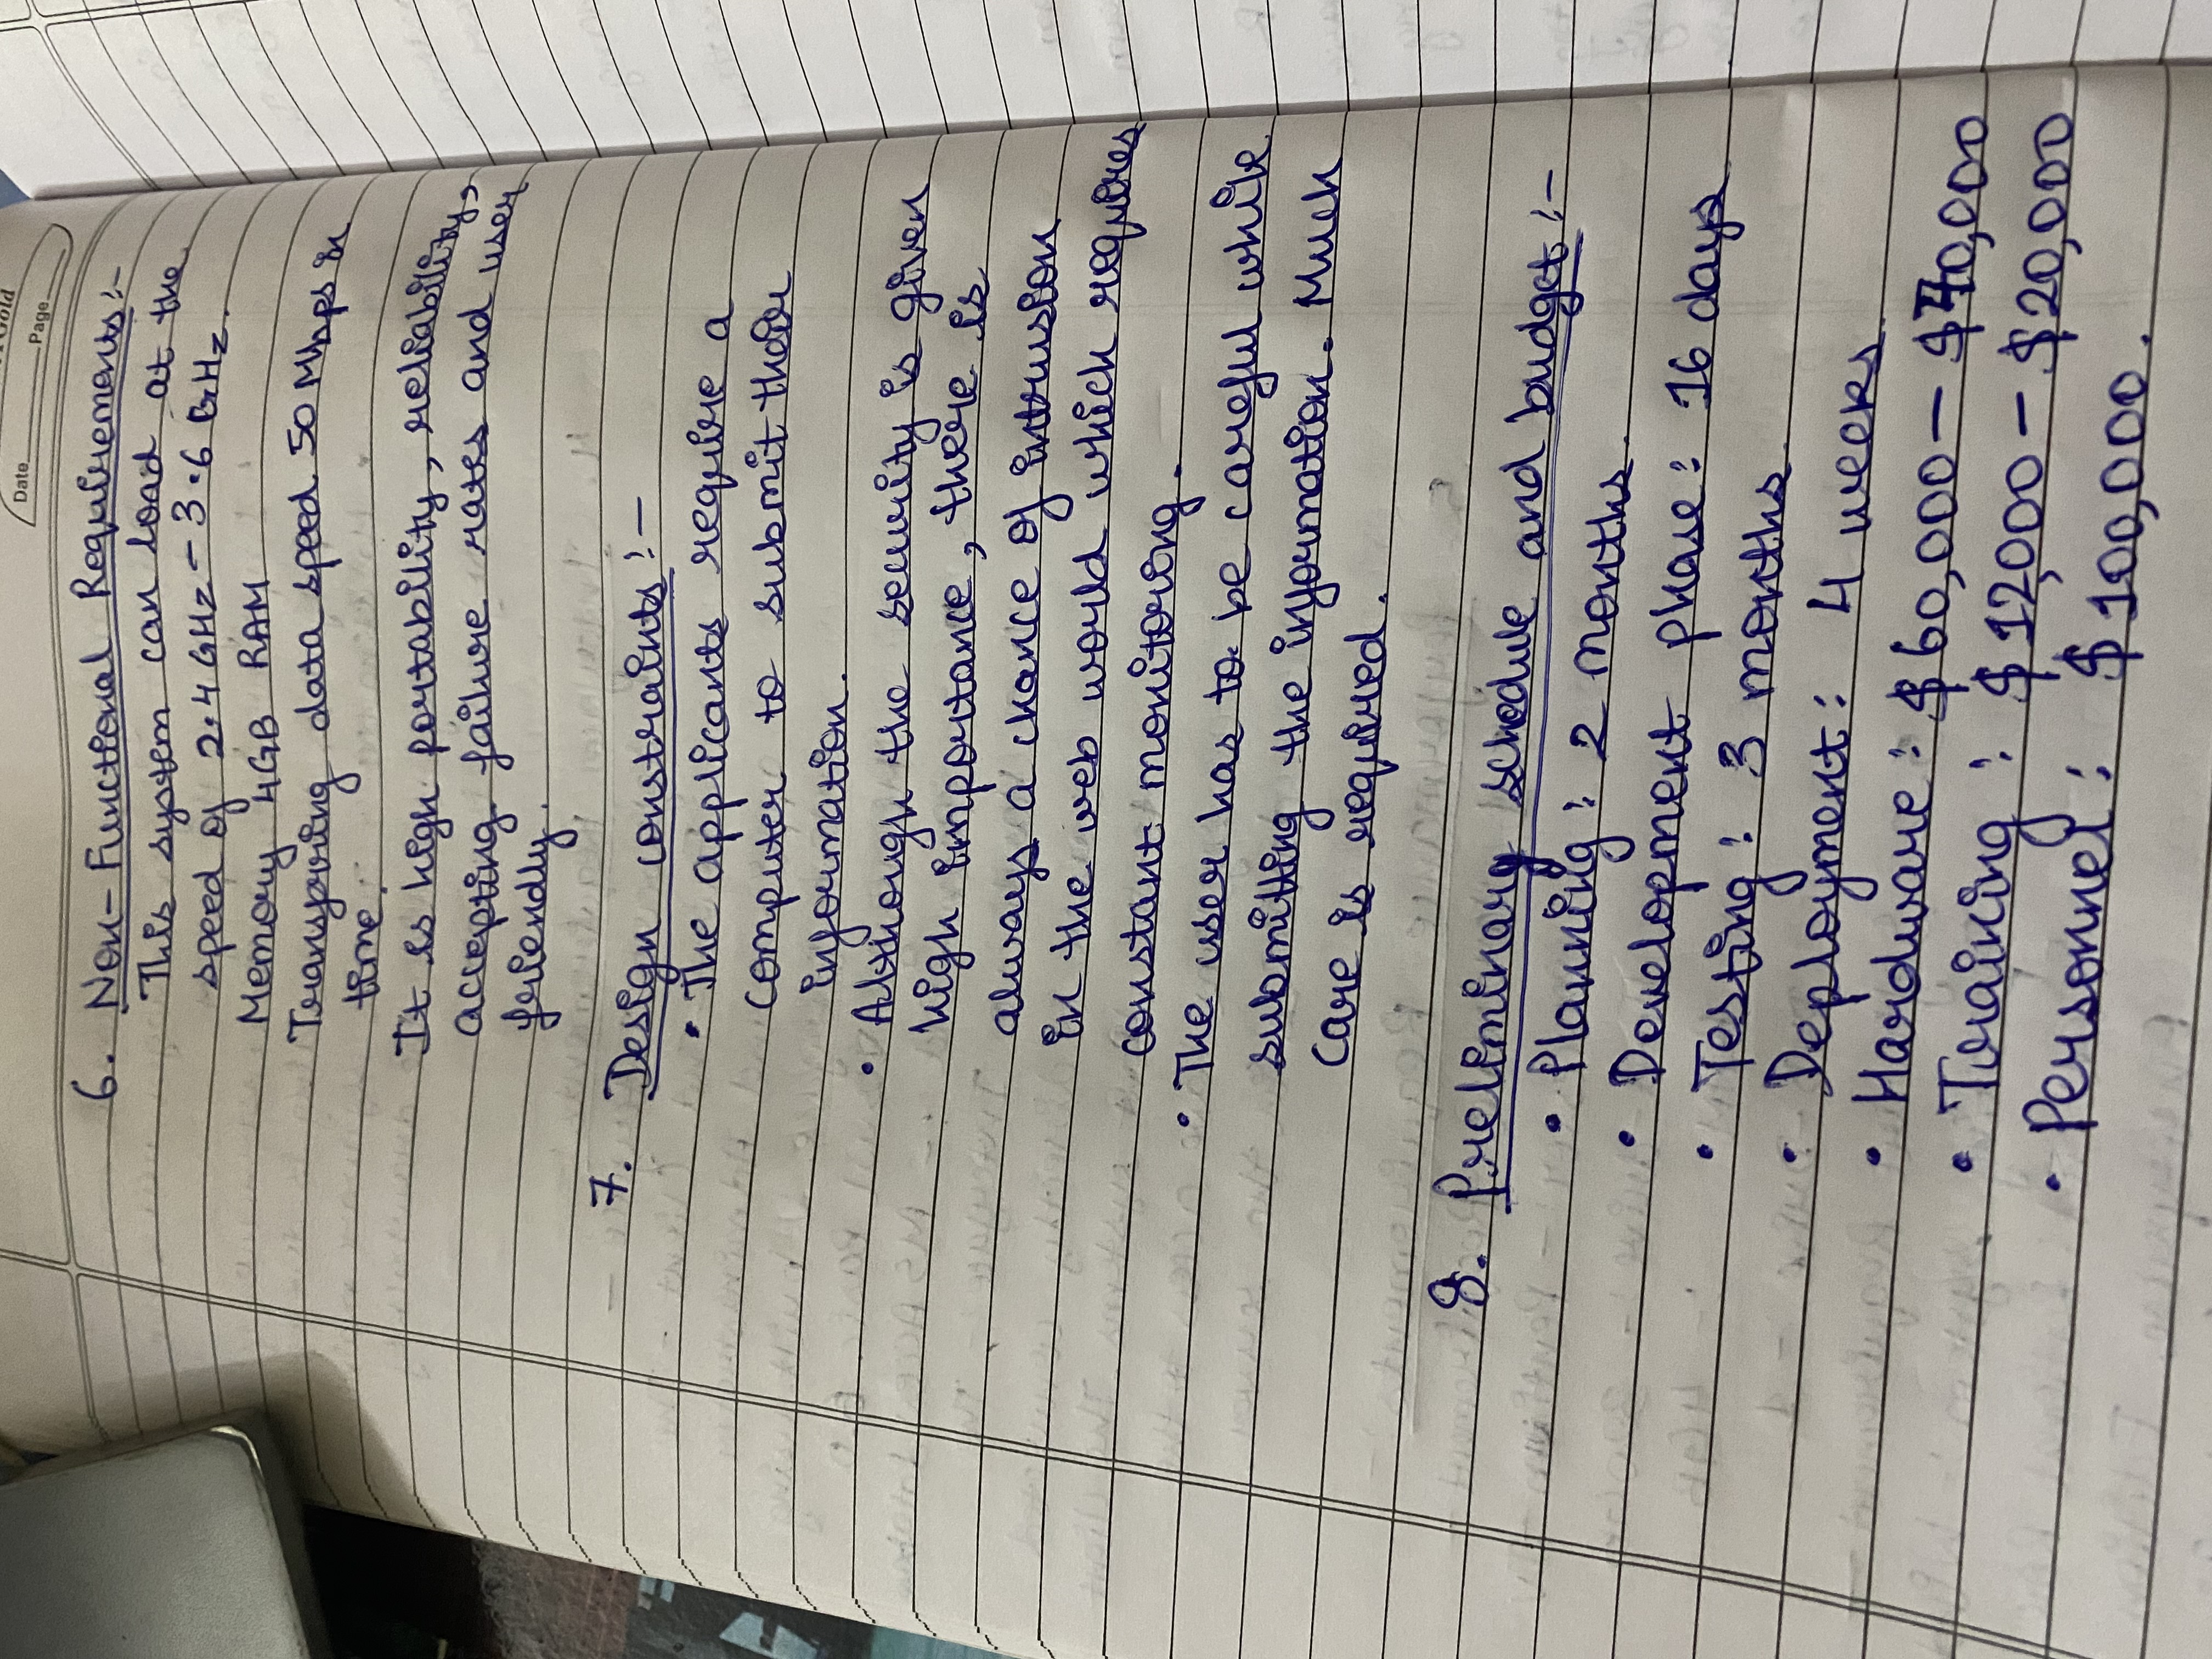 Gold
Date
Page
6. Non-Functional Requirements:-
This system can load at the
speed of 2.4 GHz - 3.6 GHz.
Memory 4GB RAM
data speed 50 Mbps in
time.
It is high portability, reliability,
accepting failure rates and user
friendly.
7. Design constraints:-
• The applicants require a
computer to submit their
information.
• Although the security is given
high importance, there is
always a chance of intrusion
in the web would which requires
constant monitoring.
• The user has to be careful while
submitting the information. Much
care is required.
8. Preliminary schedule and budget:-
• Planning: 2 months.
• Development phase: 16 days
• Testing: 3 months
• Deployment: 4 weeks.
• Hardware: $60,000 - $70,000
• Training: $12,000 - $20,000
• Personnel: $100,000.